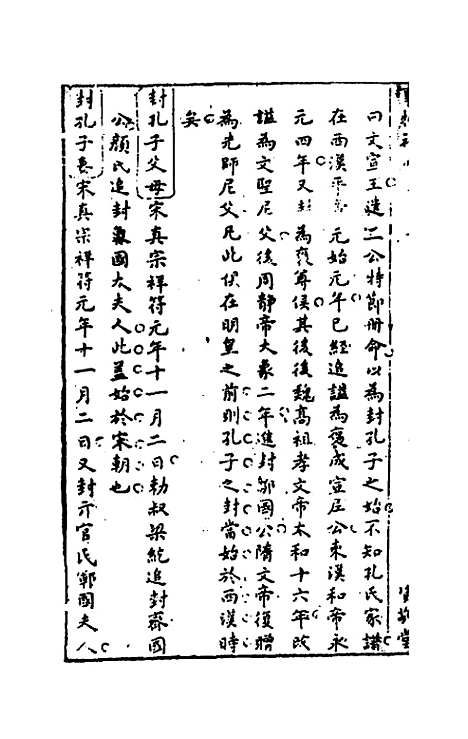 曰文宣王遣三公持節冊命以為封孔子之始不知孔氏家譜
在西漢平帝元始元年已經追謚為褒成宣尼公東漢和帝永
元四年又封為褒尊侯其後後魏高祖孝文帝太和十六年改
謚為文聖尼父後周靜帝大象二年進封鄒國公隋文帝復贈
為先師尼父凡此伏在明皇之前則孔子之封當始於西漢時
矣
封孔子父母宋真宗祥符元年十一月二日勅叔梁紇追封齊國
公顏氏追封魯國太夫人此蓋始於宋朝也
封孔子妻宋真宗祥符元年十一月二日又封亓官氏鄆國夫人